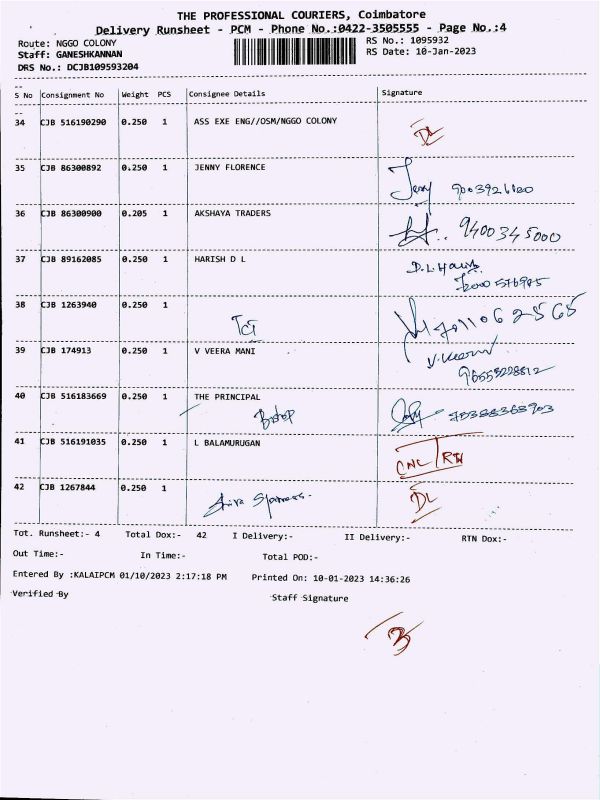 THE PROFESSIONAL COURIERS, Coimbatore
Delivery Runsheet - PCM - Phone No.:0422-3505555 - Page No.:4
Route: NGGO COLONY
RS No.: 1095932
Staff: GANESHKANNAN
RS Date: 10-Jan-2023
DRS No.: DCJB109593204
S No Consignment No Weight PCS Consignee Details Signature
34 CJB 516190290 0.250 1 ASS EXE ENG//OSM/NGGO COLONY
DL
35 CJB 86300892 0.250 1 JENNY FLORENCE
Jenny
36 CJB 86300900 0.205 1 AKSHAYA TRADERS
9400345000
37 CJB 89162085 0.250 1 HARISH D L
D.L.Harish
38 CJB 1263940 0.250 1
39 CJB 174913 0.250 1 V VEERA MANI
40 CJB 516183669 0.250 1 THE PRINCIPAL
41 CJB 516191035 0.250 1 L BALAMURUGAN
CNL/RTN
42 CJB 1267844 0.250 1
DL
Tot. Runsheet:- 4 Total Dox:- 42 I Delivery:- II Delivery:- RTN Dox:-
Out Time:- In Time:- Total POD:-
Entered By :KALAIPCM 01/10/2023 2:17:18 PM Printed On: 10-01-2023 14:36:26
Verified By Staff Signature
3